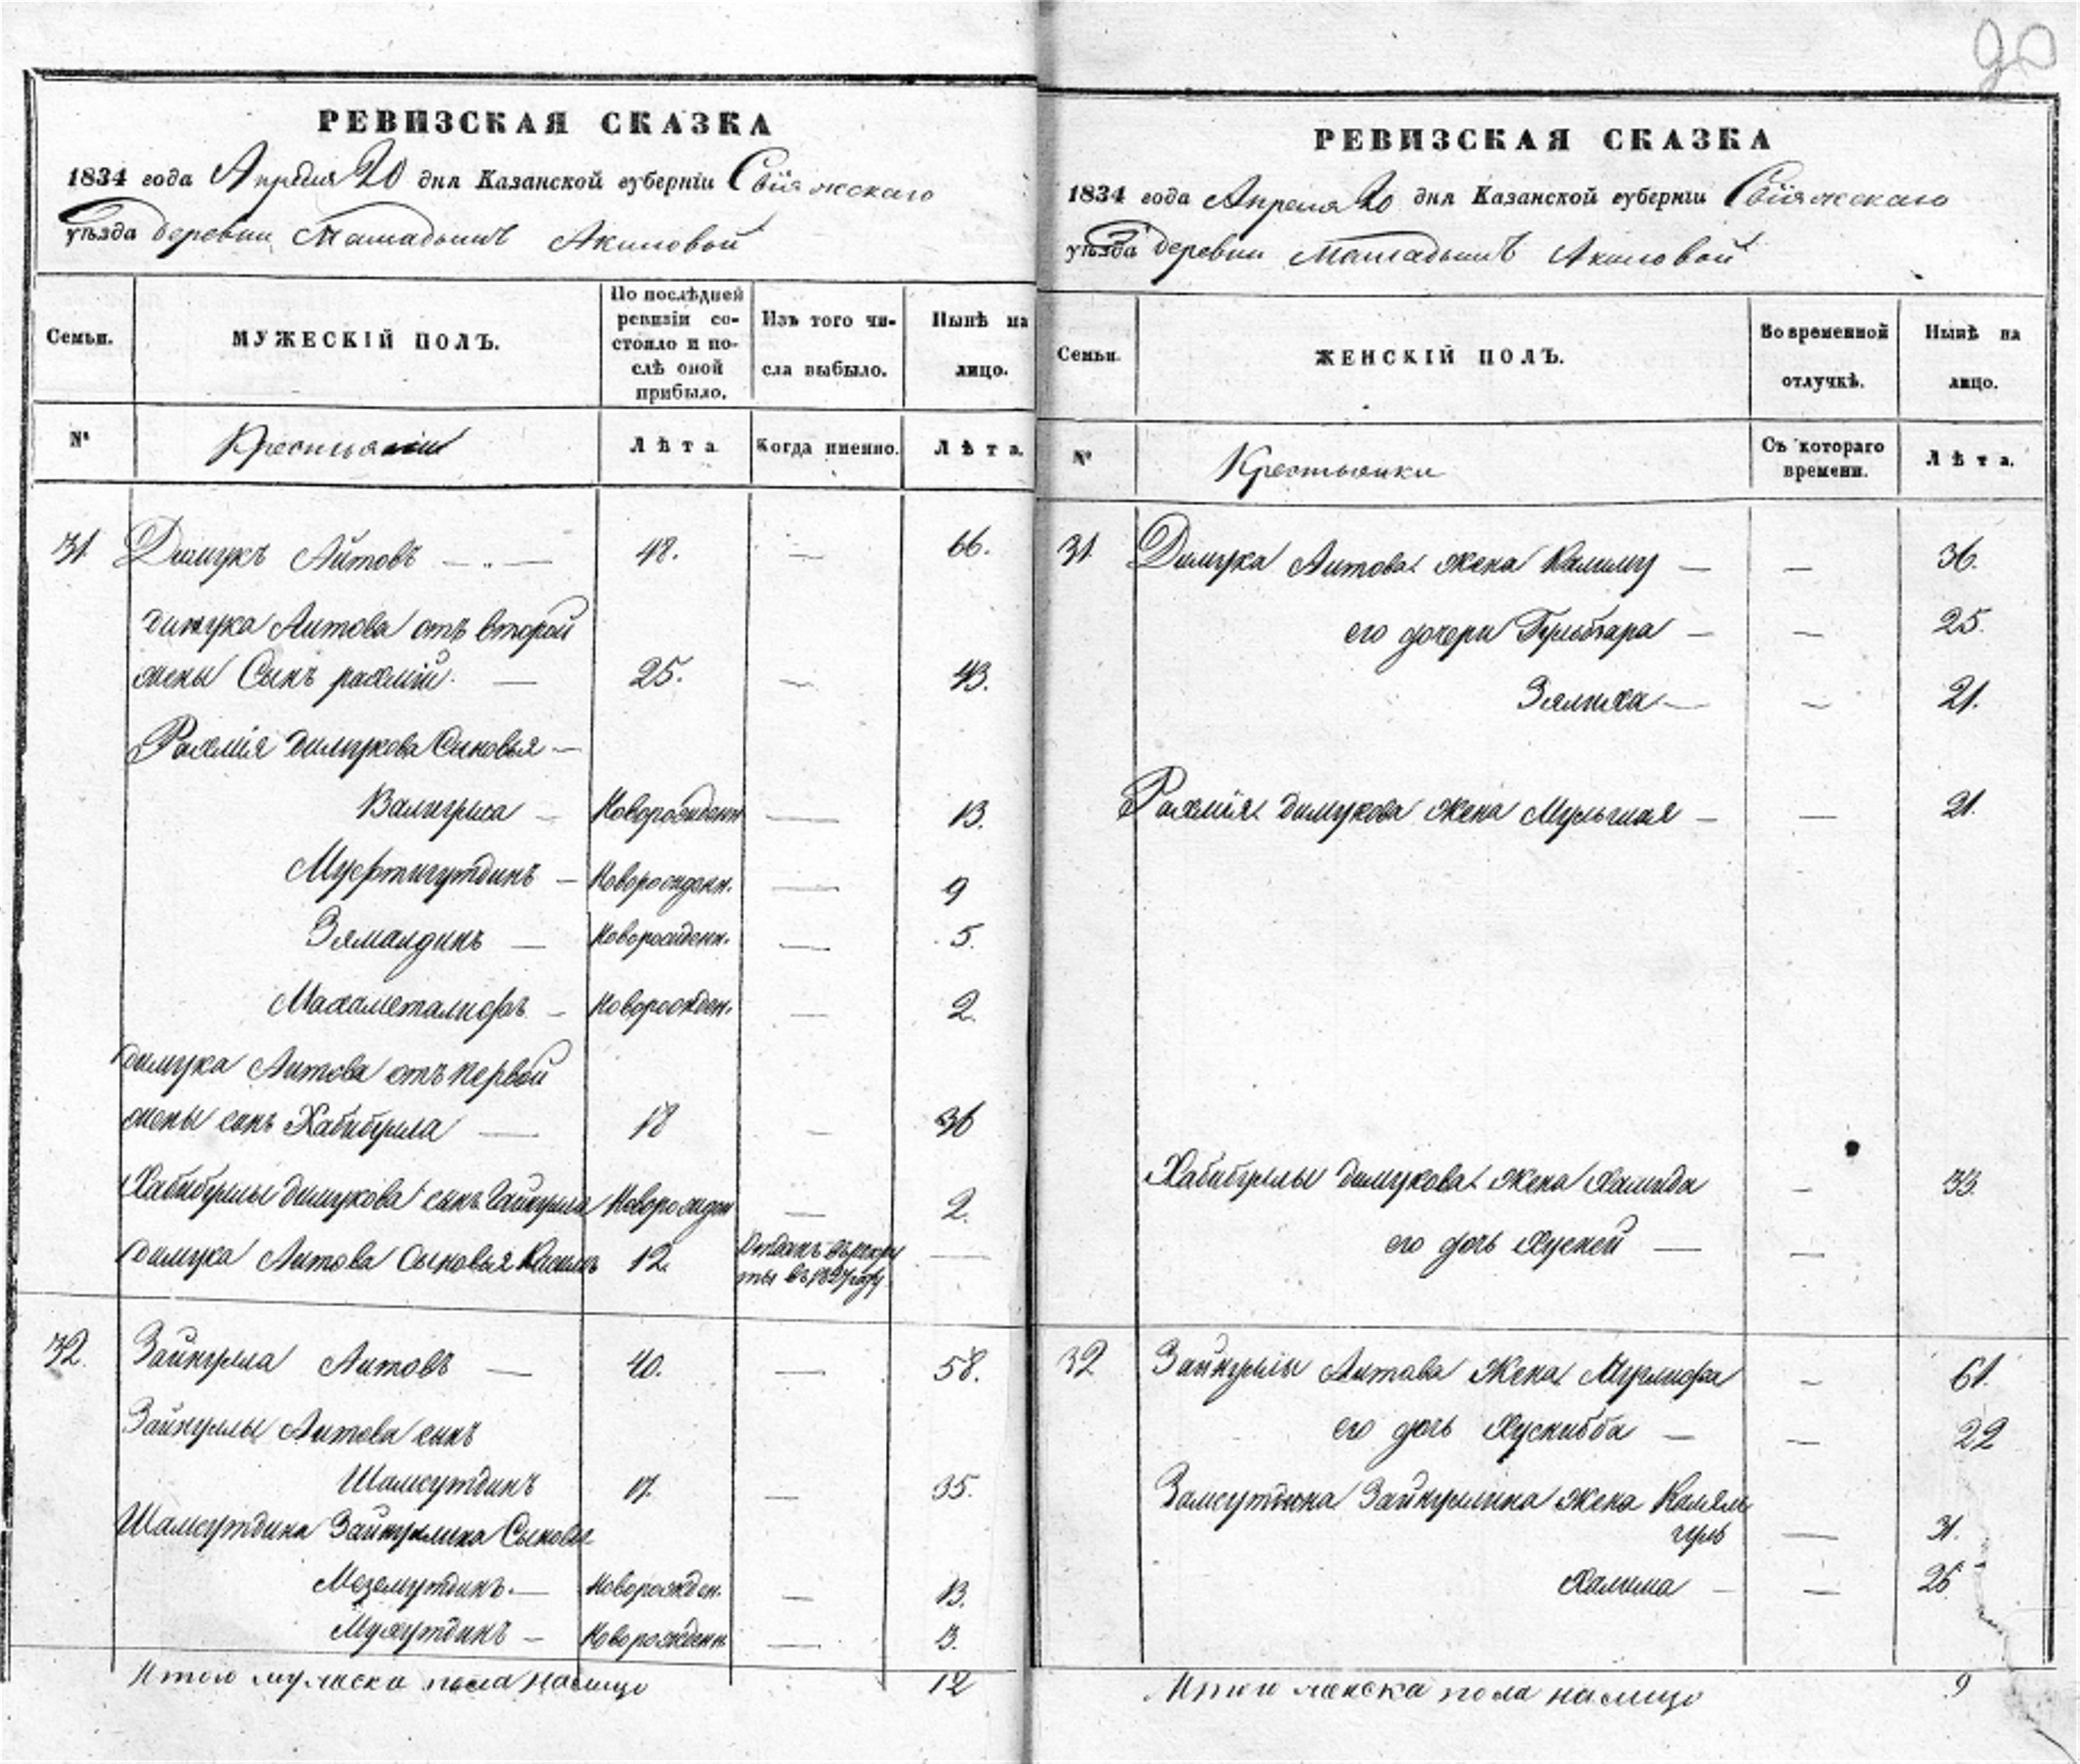 90
РЕВИЗСКАЯ СКАЗКА
1834 года Апреля 20 дня Казанской губерніи Свіяжскаго
уѣзда деревни Мамадышъ Акиловой
Семьи.
МУЖЕСКІЙ ПОЛЪ.
По послѣдней ревизіи состояло и послѣ оной прибыло.
Изъ того числа выбыло.
Нынѣ на лицо.
№
Крестьяне
Лѣта
Когда именно.
Лѣта.
31. Дилмукъ Аитовъ — 48. — 66.
Дилмука Аитова отъ второй
жены Сынъ рахмій — 25. — 43.
Рахмія дилмукова Сыновья —
Валигулла — Новорожден — 13.
Муфтигутдинъ — Новорожден. — 9
Зямалдинъ — Новорожден. — 5.
Махаметалифъ — Новорожден. — 2.
дилмука Аитова отъ первой
жены сынъ Хабибулла — 18 — 36
Хабибуллы дилмукова сынъ Гайнулла Новорожден — 2.
дилмука Аитова Сыновья Касимъ 12. Отданъ въ рекру
ты въ 1827 году —
32. Зайнулла Аитовъ — 40. — 58.
Зайнуллы Аитова сынъ
Шамсутдинъ 17. — 35.
Шамсутдина Зайнуллина Сыновья
Меземутдинъ — Новорожден. — 13.
Мухутдинъ — Новорожденн — 3.
Итого мужеска пола налицо 12
РЕВИЗСКАЯ СКАЗКА
1834 года Апреля 20 дня Казанской губерніи Свіяжскаго
уѣзда деревни Мамадышъ Акиловой
Семьи.
ЖЕНСКІЙ ПОЛЪ.
Во временной отлучкѣ.
Нынѣ на лицо.
№
Крестьянки
Съ котораго времени.
Лѣта.
31. Дилмука Аитова жена — — 36.
его дочери Гульбгара — — 25.
Зялиха — — 21.
Рахмія дилмукова жена — — 21.
Хабибуллы дилмукова жена Халида — 33.
его дочь Хусней — —
32 Зайнуллы Аитова жена — 61.
его дочь Хуснибба — — 22
Замсутдина Зайнуллина жена Камяль
— 31.
Халима — — 26
Итого женска пола налицо 9